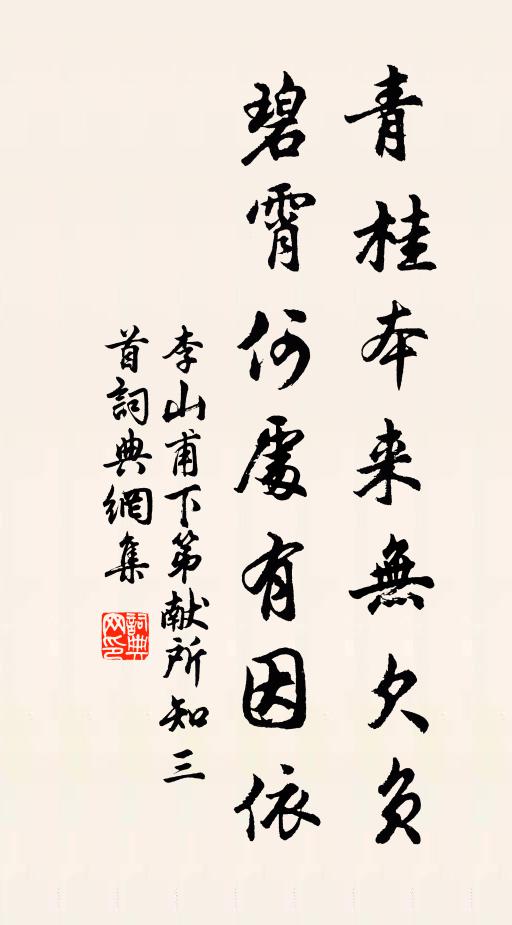 青桂本来無欠負
碧霄何處有因依
李山甫下第献所知三
首詞典網集
詞典网印